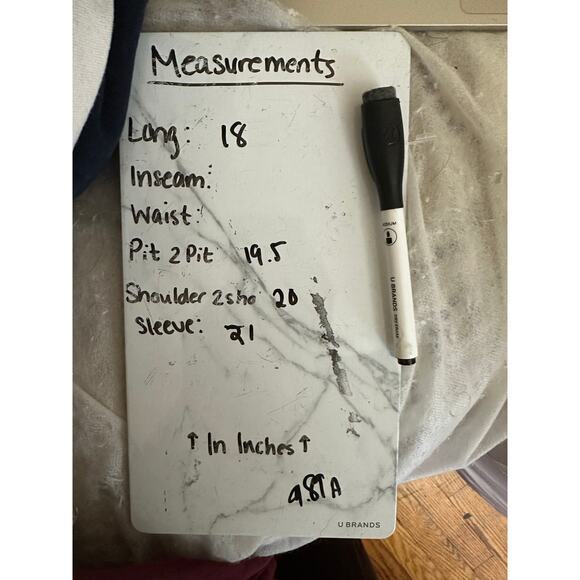 Measurements
Long: 18
Inseam:
Waist:
Pit 2 Pit 19.5
Shoulder 2sho 20
Sleeve: 21
↑ In Inches ↑
U BRANDS
U BRANDS
MEDIUM